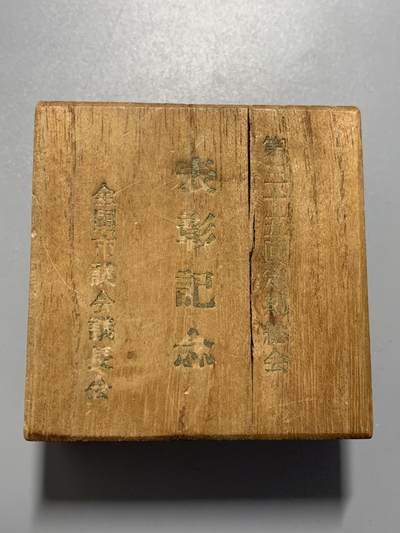 第二十五回定期総会
表彰記念
全国市議会議長会